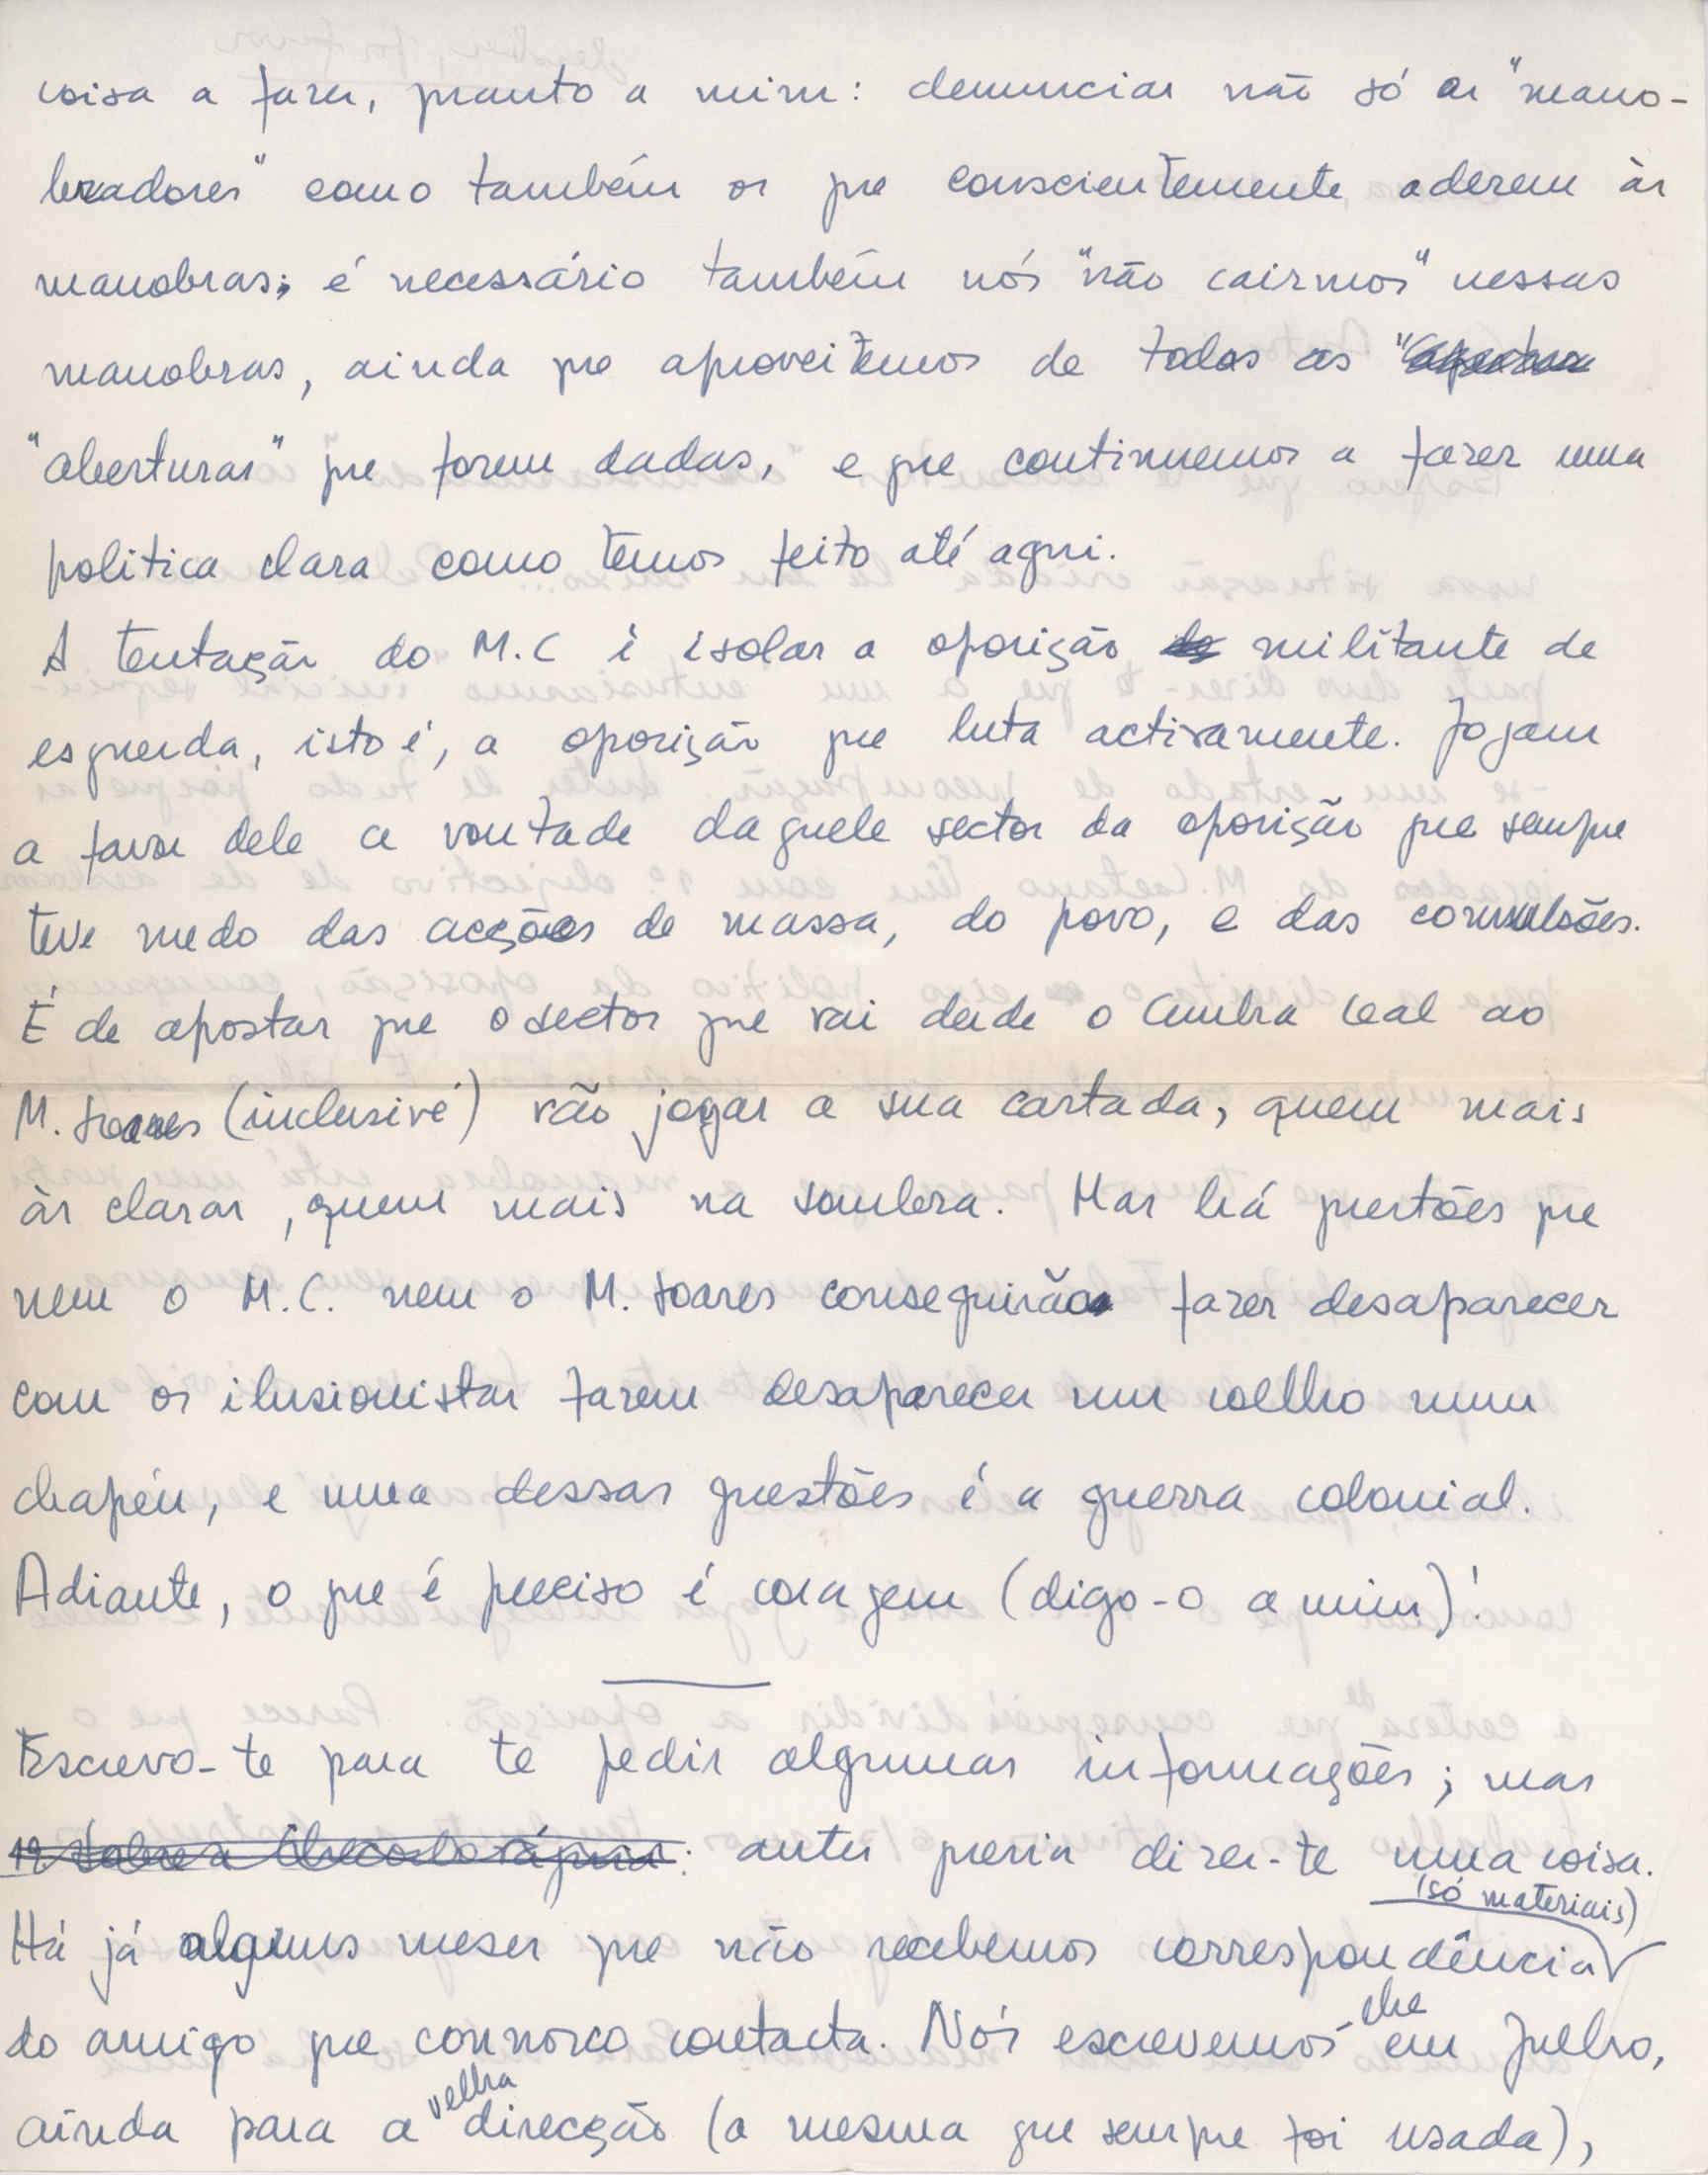 coisa a fazer, quanto a mim: denunciar não só os "mano-
bradores" como também os que conscientemente aderem às
manobras; é necessário também nós "não cairmos" nessas
manobras, ainda que aproveitemos de todas as
"aberturas" que forem dadas, e que continuemos a fazer uma
politica clara como temos feito até aqui.
A tentação do M.C é isolar a oposição militante de
esquerda, isto é, a oposição que luta activamente. Jogam
a favor dele a vontade daquele sector da oposição que sempre
teve medo das acções de massa, do povo, e das convulsões.
É de apostar que o sector que vai desde o Cunha Leal ao
M. Soares (inclusivé) vão jogar a sua cartada, quem mais
às claras, quem mais na sombra. Mas há questões que
nem o M.C. nem o M. Soares conseguirão fazer desaparecer
com os ilusionistas fazem desaparecer um coelho num
chapéu, e uma dessas questões é a guerra colonial.
Adiante, o que é preciso é coragem (digo-o a mim)!
Escrevo-te para te pedir algumas informações; mas
1º Sobre a Checoslováquia: antes queria dizer-te uma coisa.
(só materiais)
Há já alguns meses que não recebemos correspondência
do amigo que connosco contacta. Nós escrevemos-lhe em Julho,
ainda para a velha direcção (a mesma que sempre foi usada),